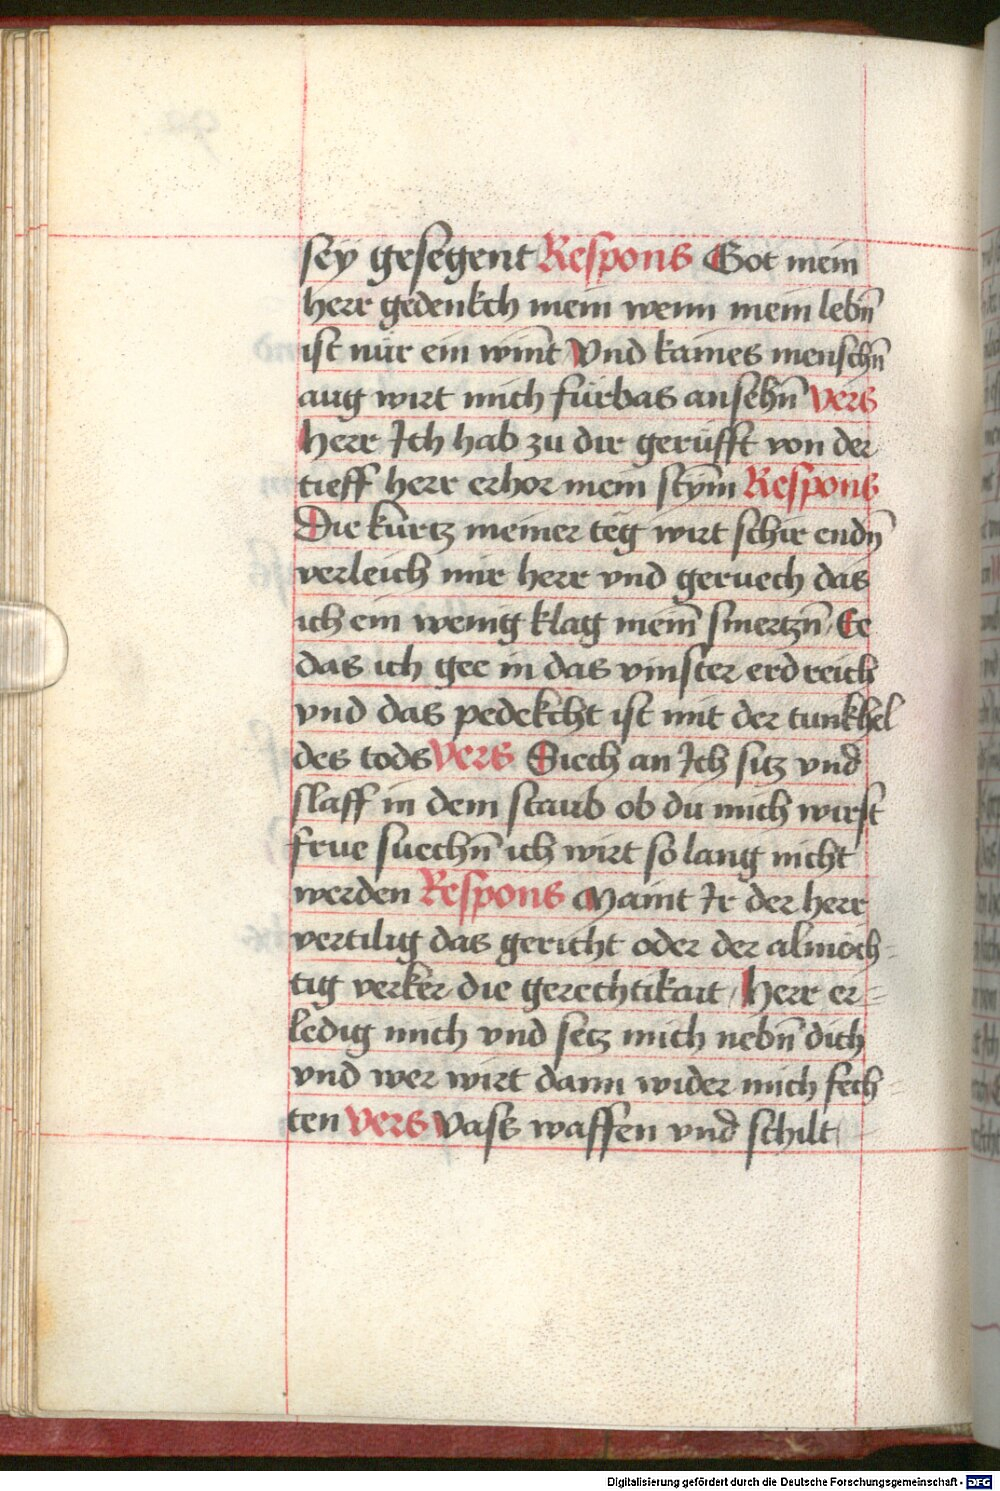 sey gesegent Respons Got mein
herr gedenkch mein wenn mein lebn̄
ist nür ein wint Vnd kaines menschn̄
aug wirt mich fürbas ansehn̄ vers
Herr Ich hab zu dir gerüfft von der
tieff herr erhor mein stym̄ Respons
Die kürtz meiner teg wirt schir endn̄
verleich mir herr vnd geruech das
ich ein wenig klag mein̄ smertzn̄ Ee
das ich gee in das vinster erdreich
vnd das pedekcht ist mit der tunkhel
des tods vers Siech an Ich sitz vnd
slaff in dem staub ob du mich wirst
frue suechn̄ ich wirt so lang nicht
werden Respons Maint Ir der herr
vertilig das gericht oder der almöch-
tig verker die gerechtikait / Herr er-
ledig mich vnd setz mich nebn̄ dich
vnd wer wirt dann wider mich fech-
ten vers Vass waffen vnd schilt
Digitalisierung gefördert durch die Deutsche Forschungsgemeinschaft - DFG